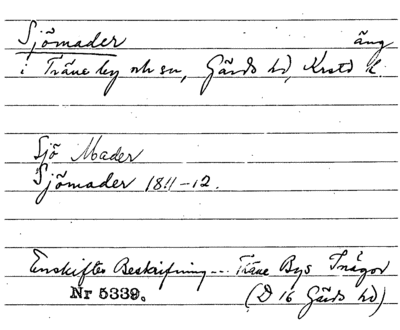 Sjömader äng
i Träne by och sn, Gärds hd, Krstd l.
Sjö Mader
Sjömader 1811-12.
Enskiftes Beskrifning... Träne Bys Inägor
Nr 5339. (D 16 Gärds hd)